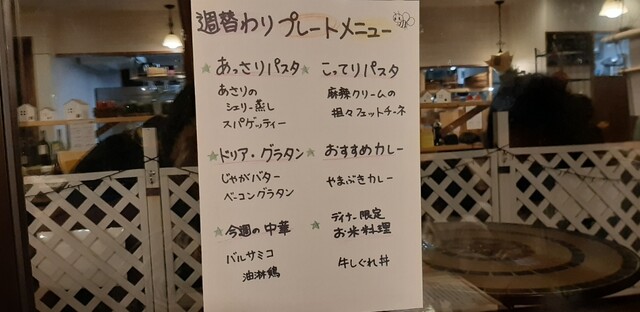 週替わりプレートメニュー
★あっさりパスタ
あさりの
シェリー蒸し
スパゲッティー
★こってりパスタ
麻辣クリームの
担々フェットチーネ
★ドリア・グラタン
じゃがバター
ベーコングラタン
★おすすめカレー
やまぶきカレー
★今週の中華
バルサミコ
油淋鶏
★ディナー限定
お米料理
牛しぐれ丼